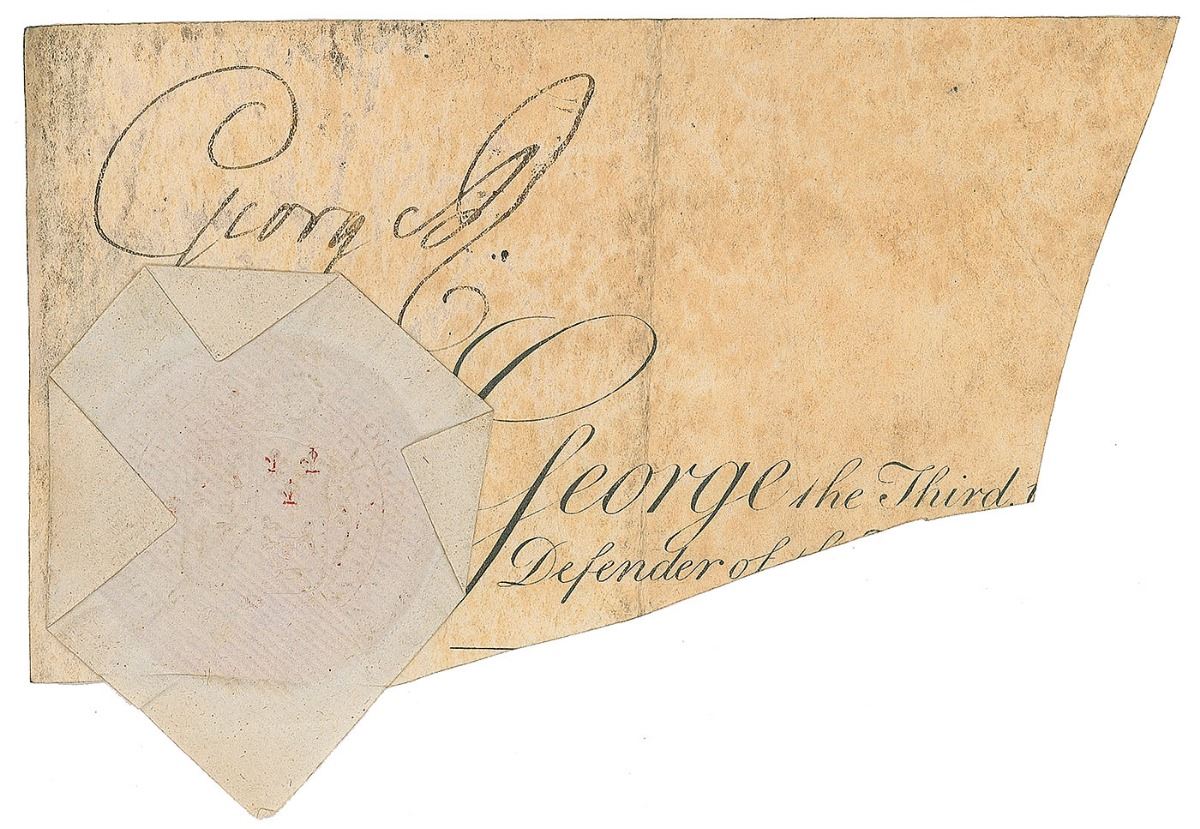 George R.
George the Third,
Defender of